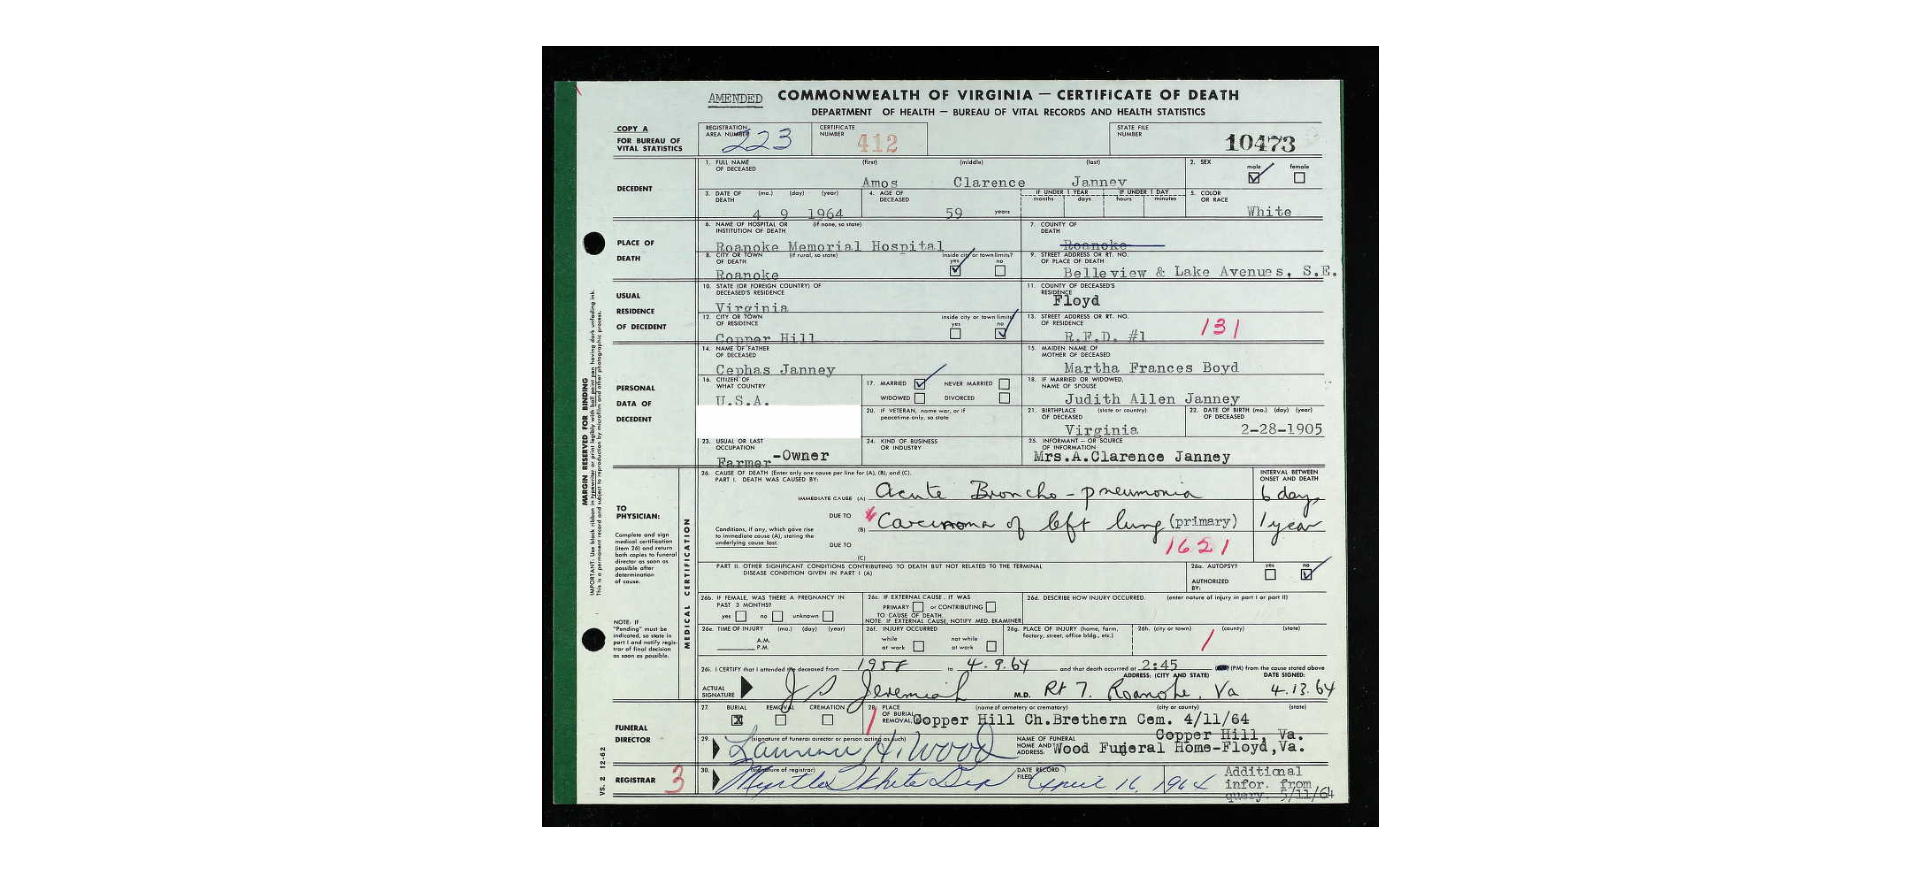 AMENDED COMMONWEALTH OF VIRGINIA — CERTIFICATE OF DEATH
DEPARTMENT OF HEALTH — BUREAU OF VITAL RECORDS AND HEALTH STATISTICS
COPY A
FOR BUREAU OF
VITAL STATISTICS
REGISTRATION
AREA NUMBER 223
CERTIFICATE
NUMBER 412
STATE FILE
NUMBER 10473
DECEDENT
1. FULL NAME
OF DECEASED
(first) (middle) (last)
Amos Clarence Janney
2. SEX
male female
3. DATE OF (mo.) (day) (year)
DEATH
4 9 1964
4. AGE OF
DECEASED
59 years
IF UNDER 1 YEAR IF UNDER 1 DAY
months days hours minutes
5. COLOR
OR RACE
White
PLACE OF
DEATH
6. NAME OF HOSPITAL OR (if none, so state)
INSTITUTION OF DEATH
Roanoke Memorial Hospital
7. COUNTY OF
DEATH
Roanoke
8. CITY OR TOWN (if rural, so state)
OF DEATH
Roanoke
inside city or town limits?
yes no
9. STREET ADDRESS OR RT. NO.
OF PLACE OF DEATH
Belleview & Lake Avenues, S.E.
USUAL
RESIDENCE
OF DECEDENT
10. STATE (OR FOREIGN COUNTRY) OF
DECEASED'S RESIDENCE
Virginia
11. COUNTY OF DECEASED'S
RESIDENCE
Floyd
12. CITY OR TOWN
OF RESIDENCE
Copper Hill
inside city or town limits?
yes no
13. STREET ADDRESS OR RT. NO.
OF RESIDENCE
R.F.D. #1
131
PERSONAL
DATA OF
DECEDENT
14. NAME OF FATHER
OF DECEASED
Cephas Janney
15. MAIDEN NAME OF
MOTHER OF DECEASED
Martha Frances Boyd
16. CITIZEN OF
WHAT COUNTRY
U.S.A.
17. MARRIED NEVER MARRIED
WIDOWED DIVORCED
18. IF MARRIED OR WIDOWED,
NAME OF SPOUSE
Judith Allen Janney
20. IF VETERAN, name war, or if
peacetime only, so state
21. BIRTHPLACE (state or country)
OF DECEASED
Virginia
22. DATE OF BIRTH (mo.) (day) (year)
OF DECEASED
2-28-1905
23. USUAL OR LAST
OCCUPATION
Farmer-Owner
24. KIND OF BUSINESS
OR INDUSTRY
25. INFORMANT - OR SOURCE
OF INFORMATION
Mrs.A.Clarence Janney
TO
PHYSICIAN:
Complete and sign
medical certification
(item 26) and return
both copies to funeral
director as soon as
possible after
determination
of cause.
NOTE: If
"Pending" must be
indicated, so state in
part I and notify regis-
trar of final decision
as soon as possible.
MEDICAL CERTIFICATION
26. CAUSE OF DEATH (Enter only one cause per line for (A), (B), and (C).
PART I. DEATH WAS CAUSED BY:
INTERVAL BETWEEN
ONSET AND DEATH
IMMEDIATE CAUSE (A) Acute Broncho-pneumonia 6 days
DUE TO
Conditions, if any, which gave rise
to immediate cause (A), stating the
underlying cause last.
(B) Carcinoma of left lung (primary) 1 year
DUE TO
(C)
1621
PART II. OTHER SIGNIFICANT CONDITIONS CONTRIBUTING TO DEATH BUT NOT RELATED TO THE TERMINAL
DISEASE CONDITION GIVEN IN PART I (A)
26a. AUTOPSY? yes no
AUTHORIZED
BY:
26b. IF FEMALE, WAS THERE A PREGNANCY IN
PAST 3 MONTHS?
yes no unknown
26c. IF EXTERNAL CAUSE, IT WAS
PRIMARY or CONTRIBUTING
TO CAUSE OF DEATH.
NOTE: IF EXTERNAL CAUSE, NOTIFY MED. EXAMINER
26d. DESCRIBE HOW INJURY OCCURRED. (enter nature of injury in part I or part II)
26e. TIME OF INJURY (mo.) (day) (year)
A.M.
P.M.
26f. INJURY OCCURRED
while not while
at work at work
26g. PLACE OF INJURY (home, farm,
factory, street, office bldg., etc.)
26h. (city or town) (county) (state)
26i. I CERTIFY that I attended the deceased from to 4.9.64 and that death occurred at 2:45 (PM) from the cause stated above
ACTUAL
SIGNATURE
J S Jeremiah M.D.
ADDRESS: (CITY AND STATE)
Rt 7. Roanoke, Va
DATE SIGNED:
4.13.64
FUNERAL
DIRECTOR
27. BURIAL REMOVAL CREMATION
28. PLACE
OF BURIAL
REMOVAL,
(name of cemetery or crematory) (city or county) (state)
Copper Hill Ch.Brethern Cem. 4/11/64
Copper Hill, Va.
29. (signature of funeral director or person acting as such)
H. Wood
NAME OF FUNERAL
HOME AND
ADDRESS:
Wood Funeral Home-Floyd,Va.
REGISTRAR
3
30. (signature of registrar)
Myrtle White Dep
DATE RECORD
FILED:
April 16, 1964
Additional
infor. from
query. 5/11/64
MARGIN RESERVED FOR BINDING
VS. 2 12-62